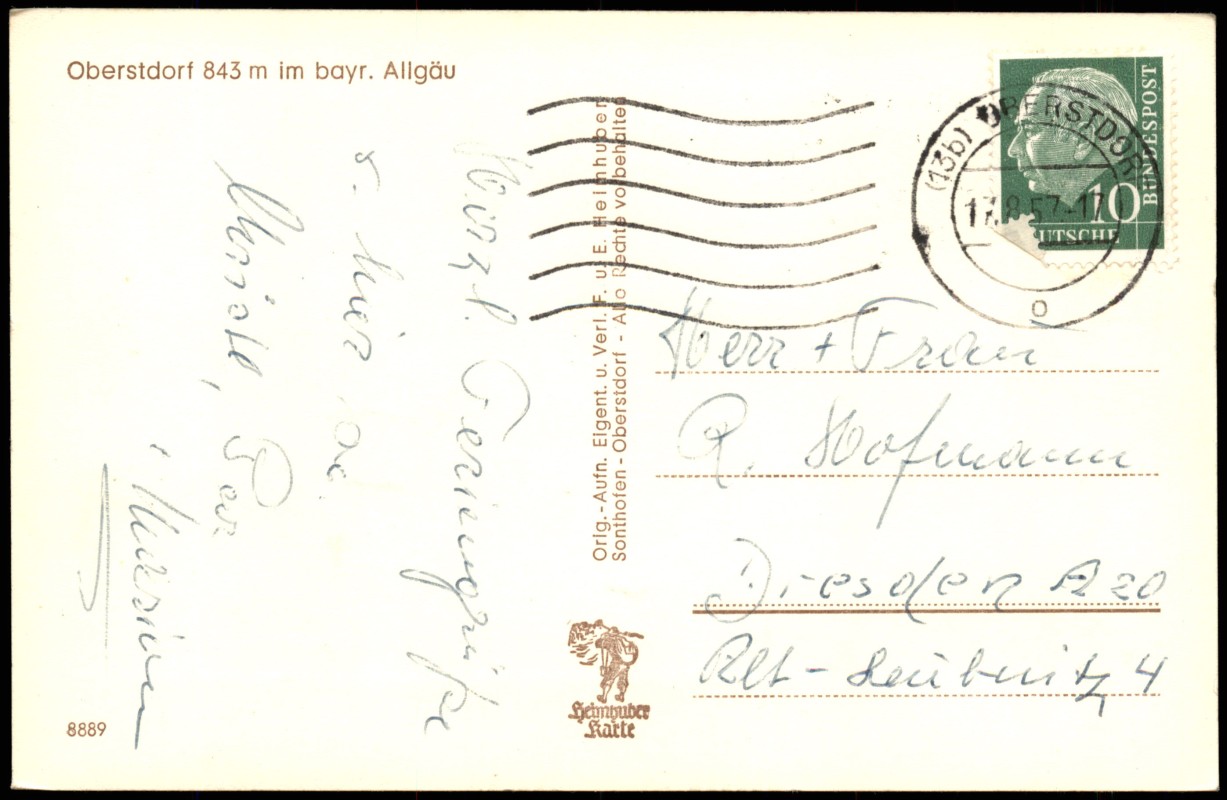 Oberstdorf 843 m im bayr. Allgäu
BUNDESPOST
10
UTSCHE
(13b) OBERSTDORF
17.8.57-17
o
Orig.-Aufn. Eigent. u. Verl. F. u. E. Heimhuber
Sonthofen - Oberstdorf - Alle Rechte vorbehalten
Herzl. Feriengrüße
v. hier
Herr + Frau
R. Hofmann
Dresden A 20
Alt-Leubnitz 4
Heimhuber
Karte
8889